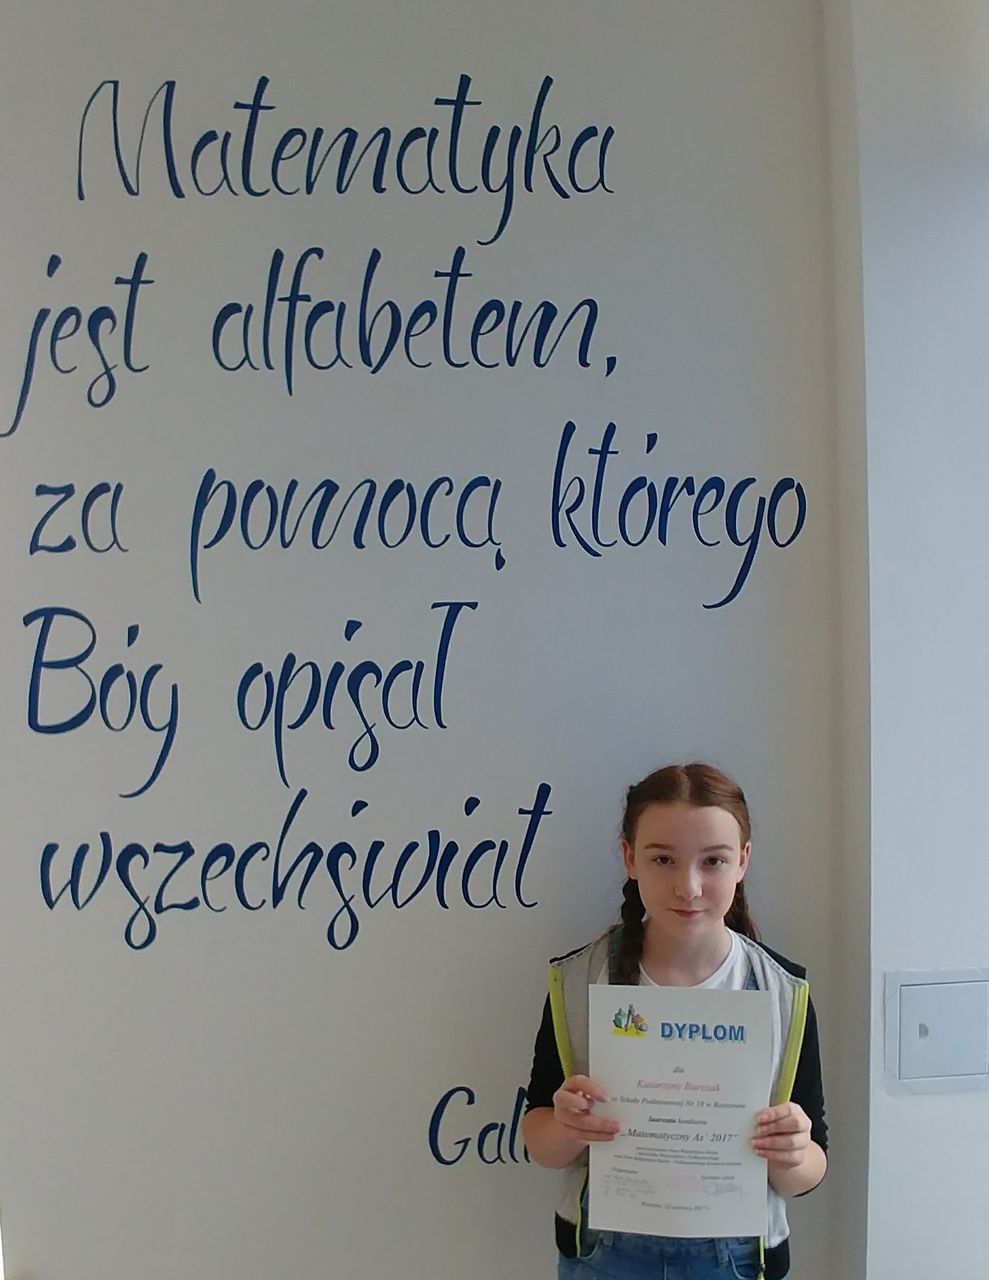 Matematyka
jest alfabetem,
za pomocą którego
Bóg opisał
wszechświat
Gali
DYPLOM
dla
Katarzyny Barczak
ze Szkoły Podstawowej Nr 18 w Rzeszowie
laureata konkursu
„Matematyczny As` 2017"
Organizator
Rzeszów, 22 czerwca 2017 r.